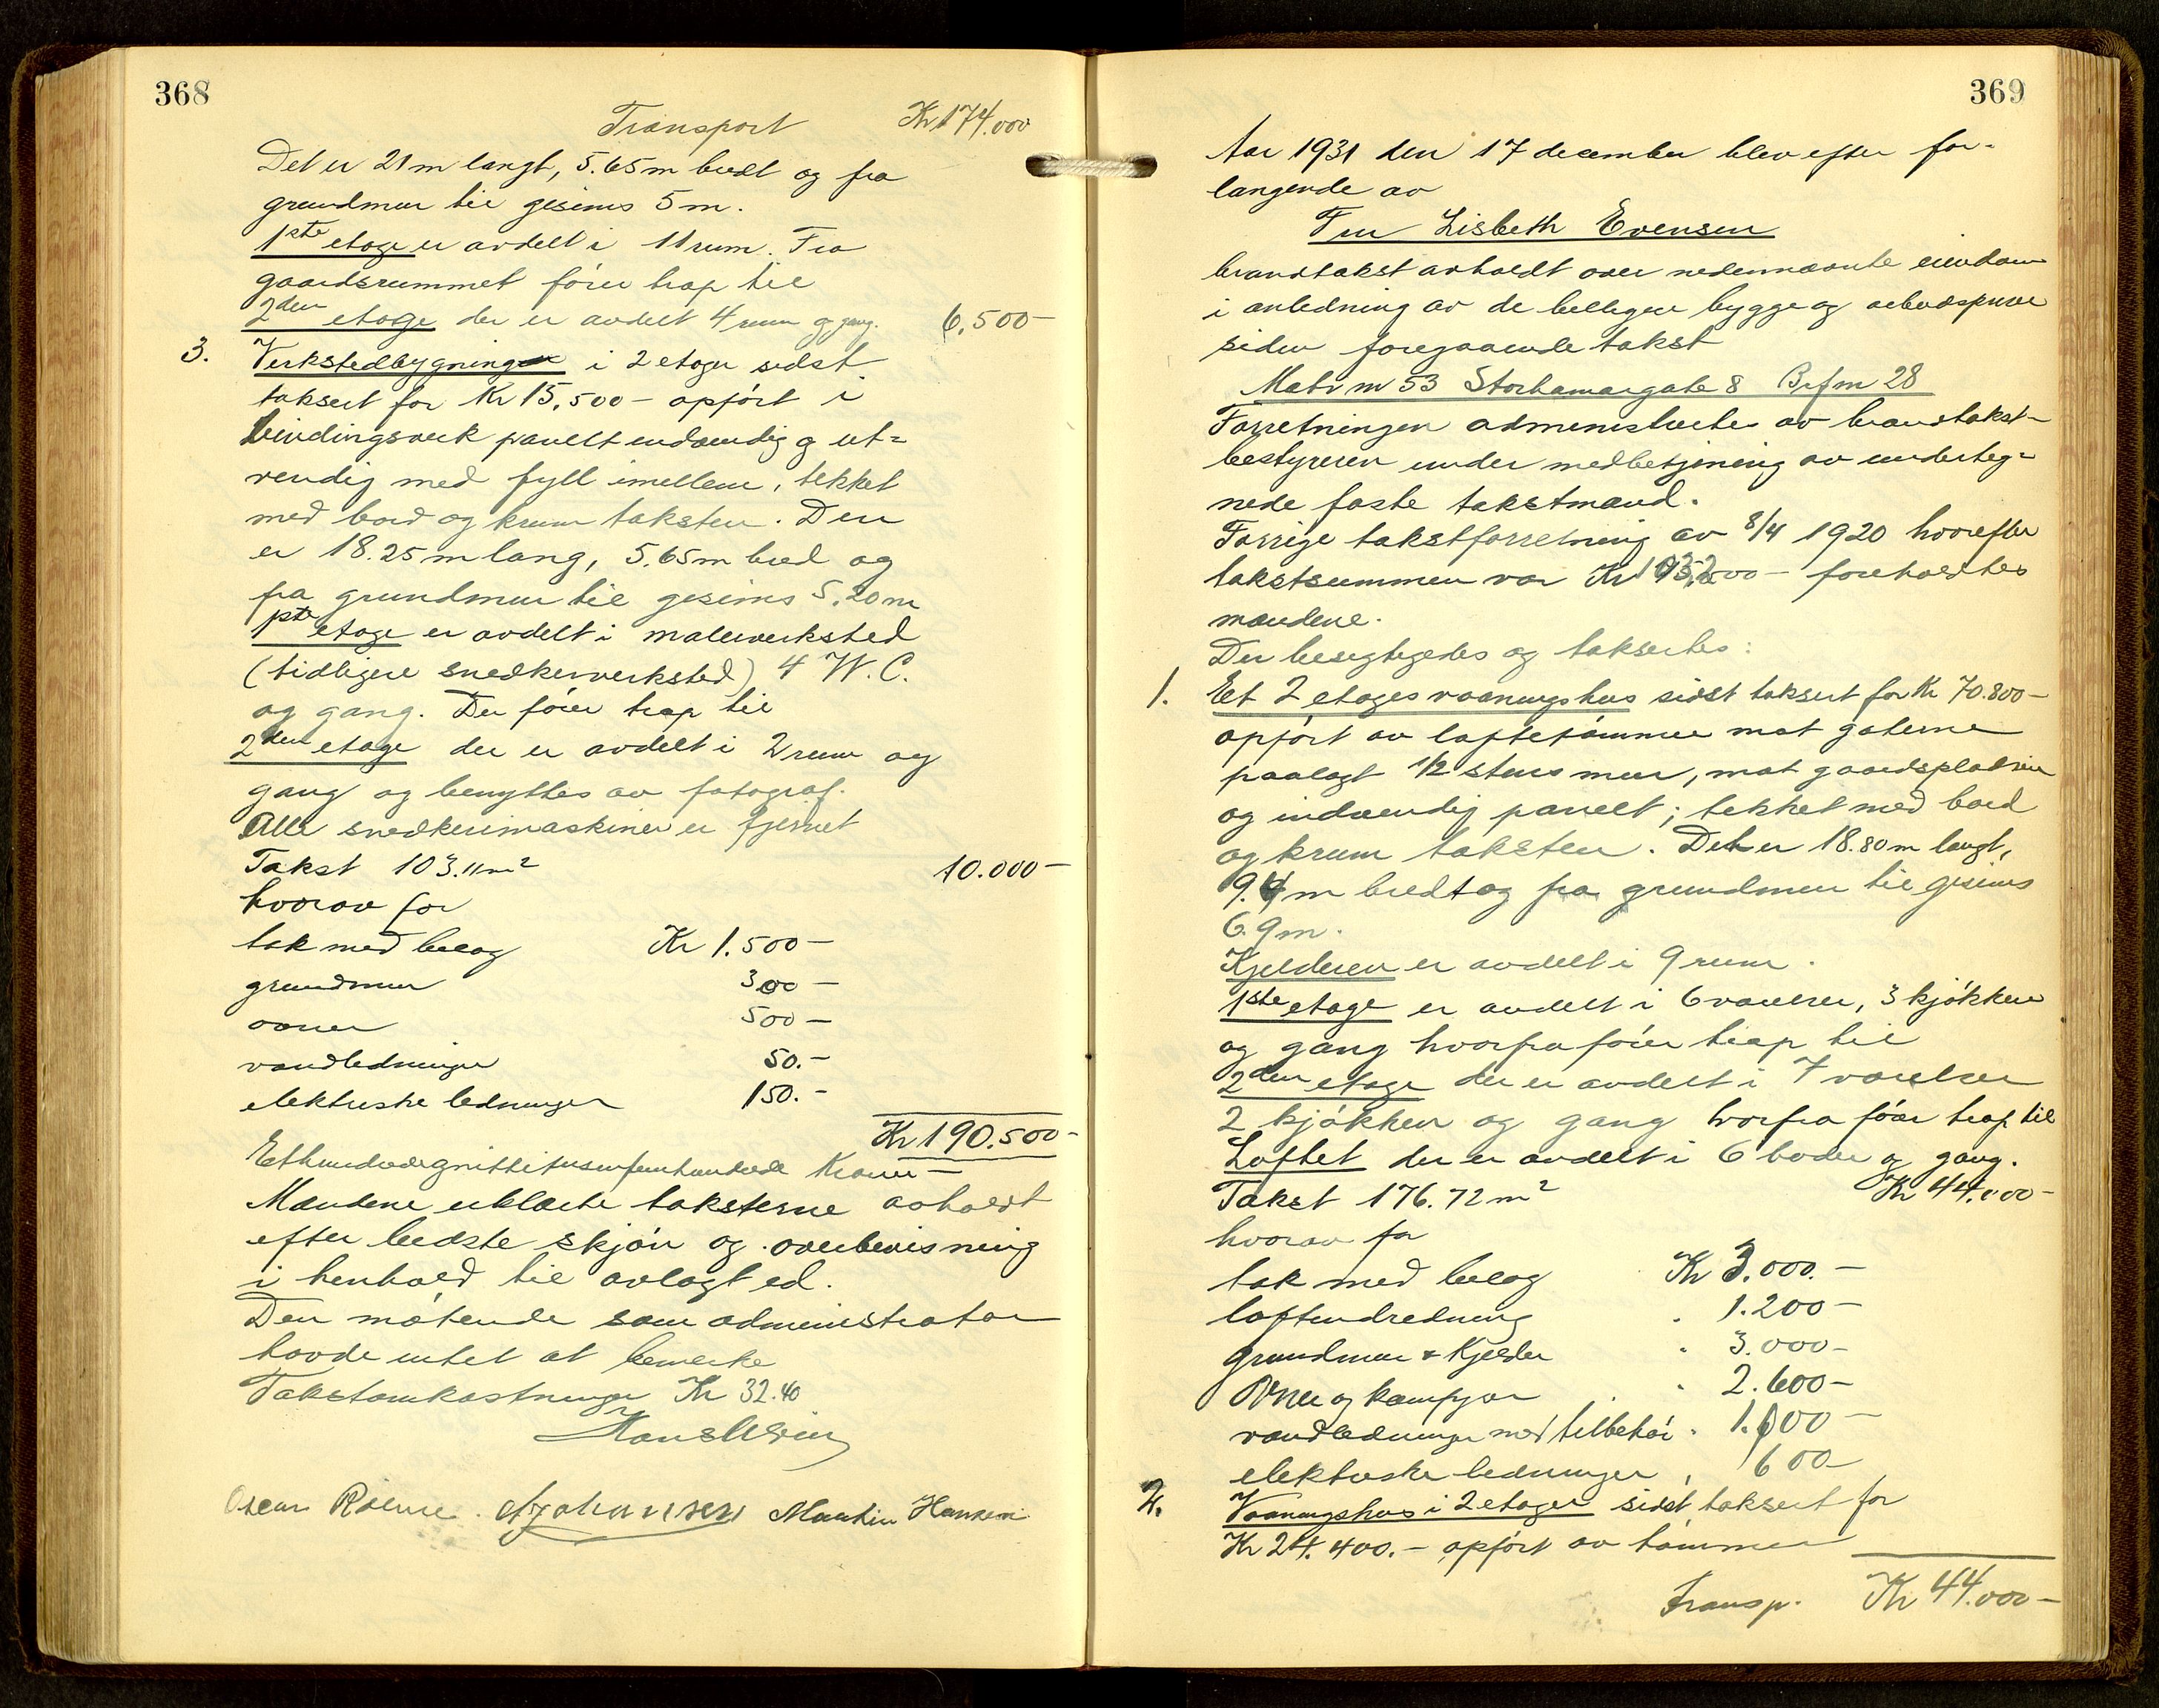 368
Transport Kr 174.000
Det er 21 m langt, 5.65 m bredt og fra
grundmur til gesims 5 m.
1ste etage er avdelt i 11 rum. Fra
gaardsrummet fører trap til
2den etage der er avdelt 4 rum og gang. 6,500-
3. Verkstedbygning i 2 etager sidst
taksert for Kr 15,500- opført i
bindingsverk panelt indvendig og ut-
vendig med fyll imellem, tekket
med bord og krum taksten. Den
er 18.25 m lang, 5.65 m bred og
fra grundmur til gesims 5.20 m
1ste etage er avdelt i malerverksted
(tidligere snedkerverksted) 4 W.C.
og gang. Der fører trap til
2den etage der er avdelt i 2 rum og
gang og benyttes av fotograf.
Alle snedkerimaskiner er fjernet
Takst 103.11 m² 10.000-
hvorav for
tak med belæg Kr 1.500-
grundmur 300-
ovner 500-
vandledninger 50.-
elektriske ledninger 150.-
Kr 190.500-
Ethundredegnittitusenfemhundrede Kroner-
Mændene erklærte taksterne avholdt
efter bedste skjøn og overbevisning
i henhold til avlagt ed.
Den møtende som administrator
havde intet at bemerke
Takstomkostninger Kr 32.40
Oscar Martin Hansen
369
Aar 1931 den 17 december blev efter for-
langende av
Fru Lisbeth Evensen
brandtakst avholdt over nedennævnte eiendom
i anledning av de billigere bygge og arbeidspriser
siden foregaaende takst
Matr nr 53 Storhamargate 8 Brf nr 28
Forretningen administrertes av brandtakst-
bestyreren under medbetjening av underteg-
nede faste takstmænd.
Forrige takstforretning av 8/4 1920 hvorefter
takstsummen var Kr foreholdtes
mændene.
Der besegtigedes og taksertes:
1. Et 2 etages vaaningshus sidst taksert for Kr 70.800-
opført av laftetømmer mot gaterne
paalagt 1/2 stens mur, mot gaardspladsen
og indvendig panelt; tekket med bord
og krum taksten. Det er 18.80 m langt,
9.4 m bredt og fra grundmur til gesims
6.9 m.
Kjelderen er avdelt i 9 rum.
1ste etage er avdelt i 6 værelser, 3 kjøkken
og gang hvorfra fører trap til
2den etage der er avdelt i 7 værelser
2 kjøkken og gang hvorfra fører trap til
Loftet der er avdelt i 6 boder og gang.
Takst 176.72 m² Kr 44.000-
hvorav for
tak med belæg Kr 3.000.-
loftindredning " 1.200-
grundmur & Kjelder " 3.000-
Ovner og komfyrer " 2.600-
vandledninger med tilbehør " 1.600-
elektriske ledninger " 600-
2. Vaaningshus i 2 etager sidst taksert for
Kr 24.400.- opført av tømmer
Transp. Kr 44.000-